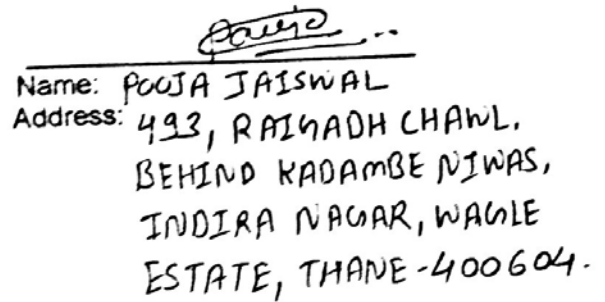 Pooja
Name: POOJA JAISWAL
Address: 493, RAIGADH CHAWL,
BEHIND KADAMBE NIWAS,
INDIRA NAGAR, WAGLE
ESTATE, THANE-400604.